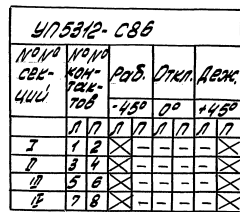 УП5312-С86
№№ сек-ций
№№ кон-так-тов
Раб. Откл. Деж.
-45° 0° +45°
Л П Л П Л П Л П
I 1 2 X - - - - X
II 3 4 X - - - - X
III 5 6 X - - - - X
IV 7 8 X - - - - X